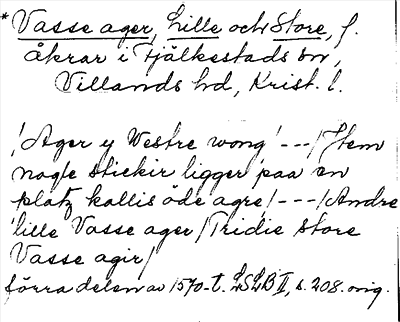 *Vasse ager, Lille och Store, f.
åkrar i Fjälkestads sn,
Villands hd, Krist. l.
'Ager y Westre wong' ---/Item
nogle stickir ligger paa en
platz kallis öde agre/---/Andre
lille Vasse ager/Tridie store
Vasse agir/
förra delen av 1570-t. LSLB II, s. 208. orig.